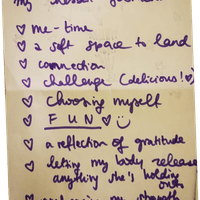 my
♡ me-time
♡ a soft space to land
♡ connection
♡ challenge (delicious!♡)
♡ choosing myself
♡ FUN ♡ ☺
♡ a reflection of gratitude
♡ letting my body release
anything she's holding
onto
♡ my strength